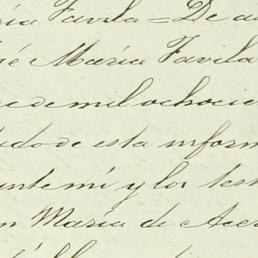 ría Favila = De au
sé María Favila
ce de mil ochocie
tado de esta inform
ante mí y los test
n María de Ace